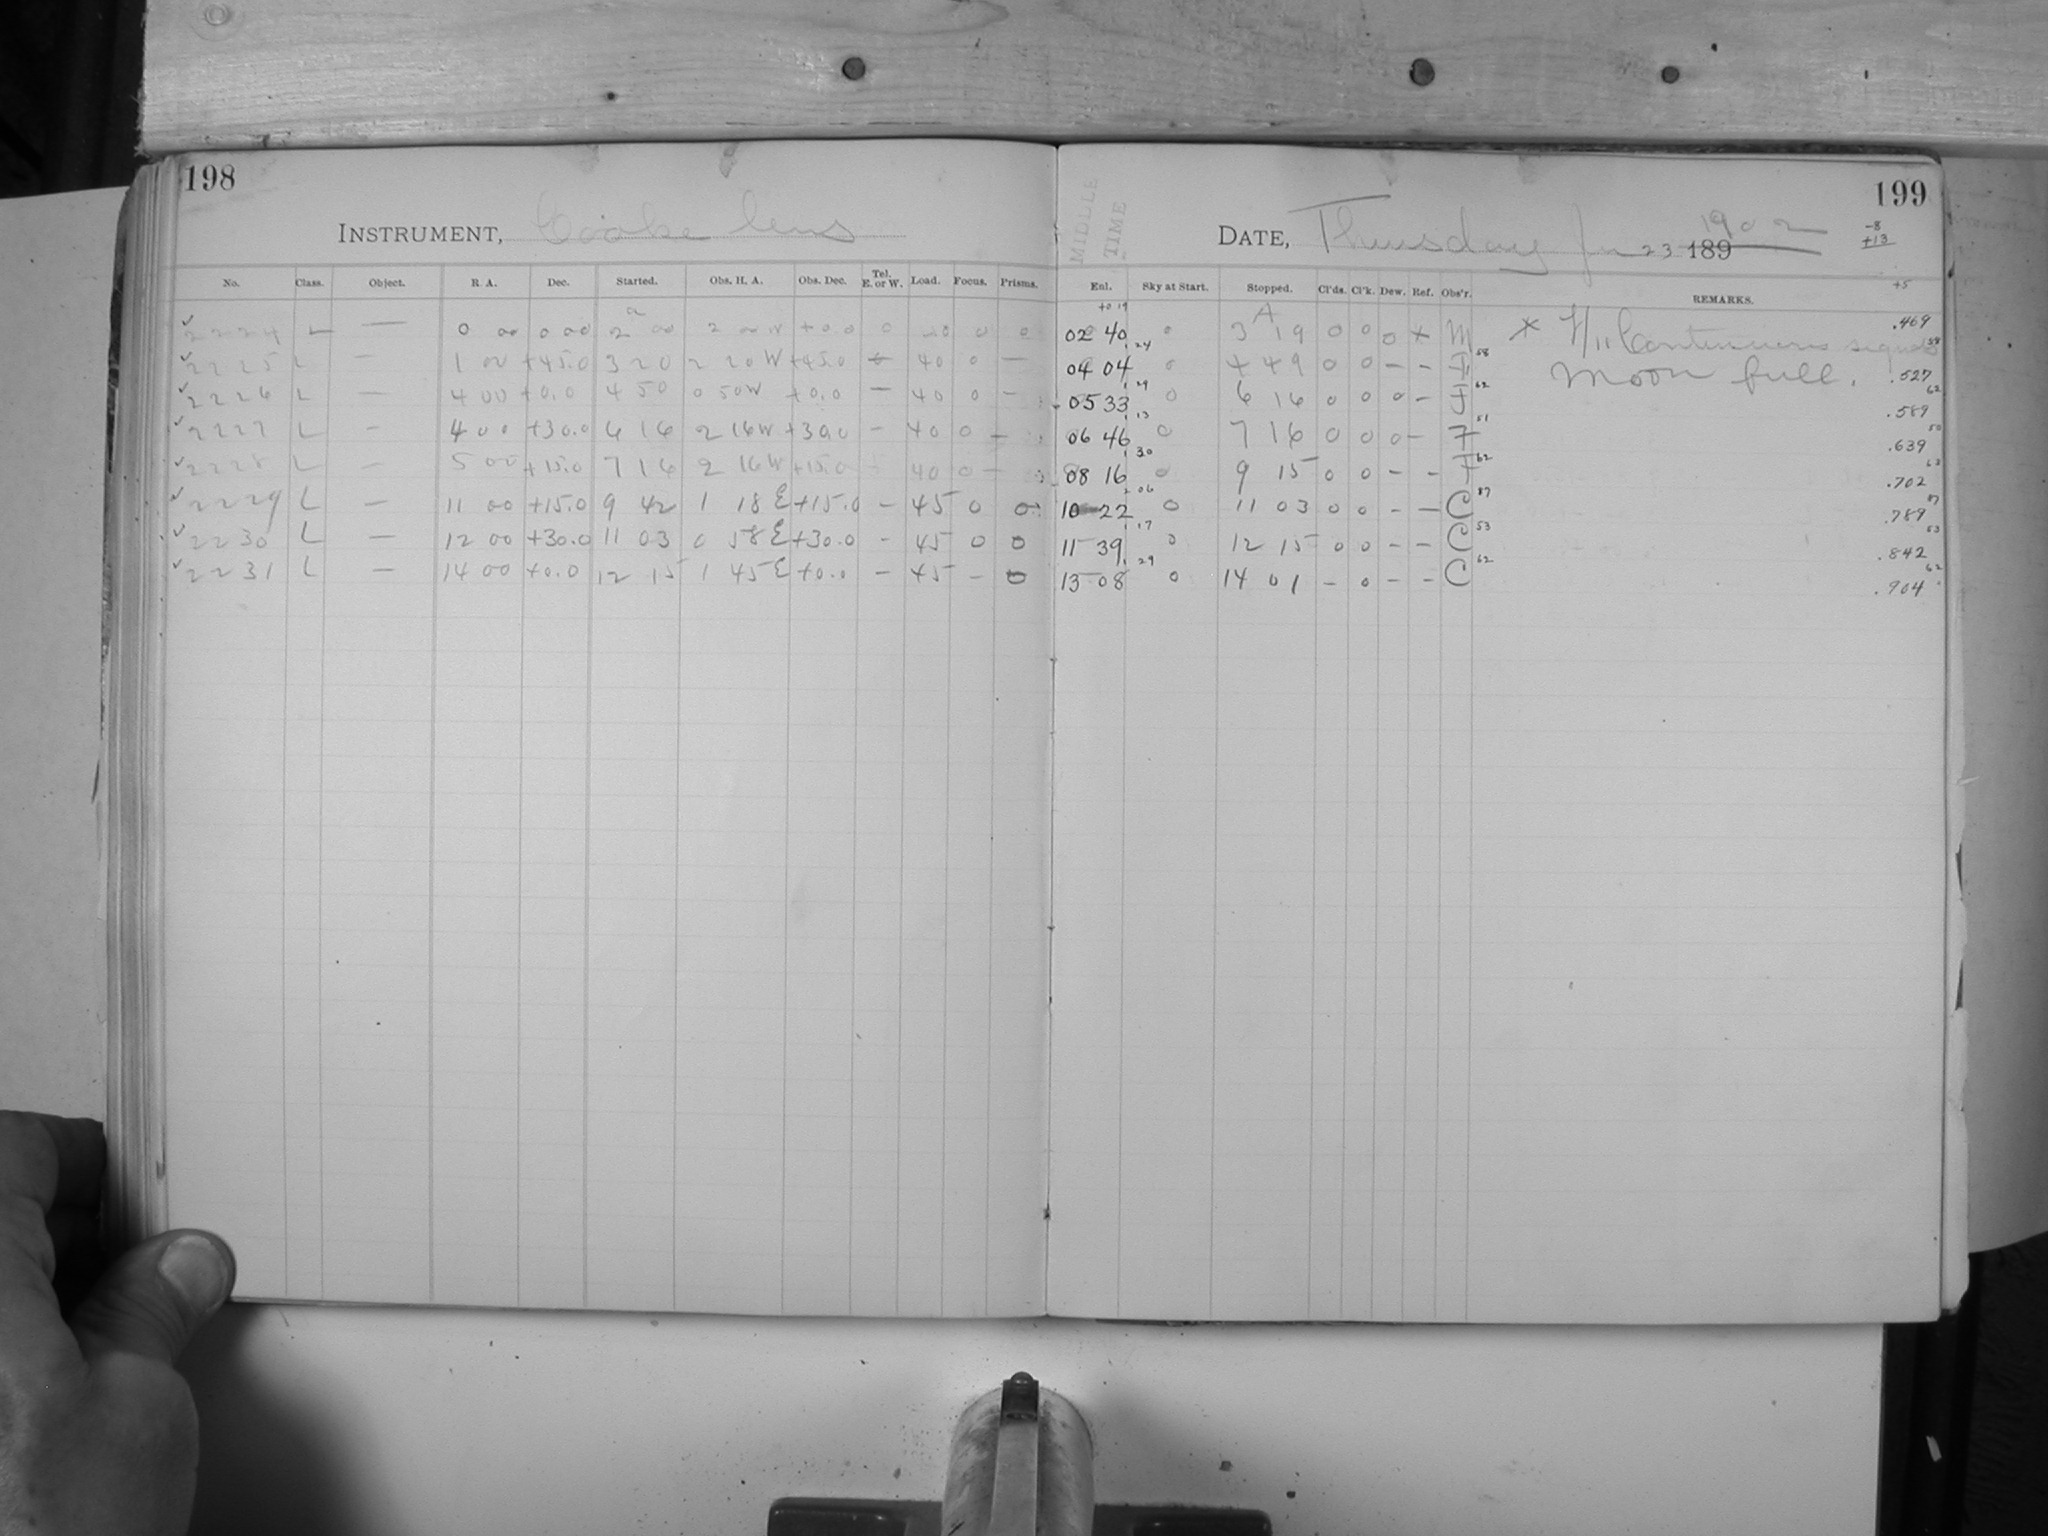 198
INSTRUMENT, Cooke lens
No. Class. Object. R. A. Dec. Started. Obs. H. A. Obs. Dec. Tel. E. or W. Load. Focus. Prisms.
✓ 2224 L — 0 00 0 00 2 00 2 00 W +0.0 0 20 0 0
✓ 2225 L — 1 00 +45.0 3 20 2 20 W +45.0 40 0 —
✓ 2226 L — 4 00 +0.0 4 50 0 50 W +0.0 — 40 0 —
✓ 2227 L — 4 00 +30.0 6 16 2 16 W +30.0 — 40 0 —
✓ 2228 L — 5 00 +15.0 7 16 2 16 W +15.0 40 0 —
✓ 2229 L — 11 00 +15.0 9 42 1 18 E +15.0 — 45 0 0
✓ 2230 L — 12 00 +30.0 11 03 0 58 E +30.0 — 45 0 0
✓ 2231 L — 14 00 +0.0 12 15 1 45 E +0.0 — 45 — 0
MIDDLE TIME
199
DATE, Thursday Jan 23 189 1902
-8
+13
+5
Enl. Sky at Start. Stopped. Cl'ds. Cl'k. Dew. Ref. Obs'r. REMARKS.
+0 19
02 40 0 3 19 0 0 0 × M × F/11 Continuous signals .469
1 24 58 58
04 04 0 4 49 0 0 — — F Moon full. .527
1 29 62 62
05 33 0 6 16 0 0 0 — F .589
1 13 51 50
06 46 0 7 16 0 0 0 — F .639
1 30 62 63
08 16 0 9 15 0 0 — — F .702
2 06 87 87
10 22 0 11 03 0 0 — — C .789
1 17 53 53
11 39 0 12 15 0 0 — — C .842
1 29 62 62
13 08 0 14 01 — 0 — — C .904